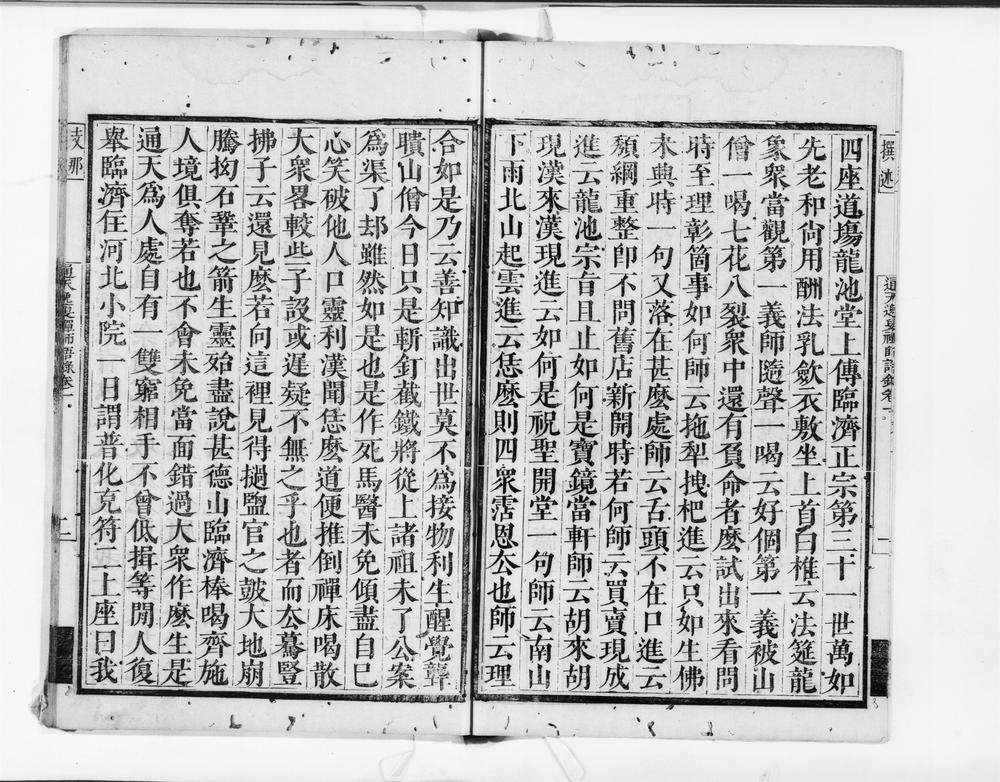 撰述
通天逸叟禪師語錄卷一
一
四座道場龍池堂上傳臨濟正宗第三十一世萬如
先老和尚用酬法乳歛衣敷坐上首白椎云法筵龍
象衆當觀第一義師隨聲一喝云好個第一義被山
僧一喝七花八裂衆中還有負命者麼試出來看問
時至理彰箇事如何師云拖犁拽杷進云只如生佛
未興時一句又落在甚麼處師云舌頭不在口進云
頹綱重整卽不問舊店新開時若何師云買賣現成
進云龍池宗旨且止如何是寶鏡當軒師云胡來胡
現漢來漢現進云如何是祝聖開堂一句師云南山
下雨北山起雲進云恁麼則四衆霑恩厺也師云理
合如是乃云善知識出世莫不爲接物利生醒覺聾
聵山僧今日只是斬釘截鐵將從上諸祖未了公案
爲渠了却雖然如是也是作死馬醫未免傾盡自己
心笑破他人口靈利漢聞恁麼道便推倒禪床喝散
大衆畧較些子設或遲疑不無之乎也者而厺驀豎
拂子云還見麼若向這裡見得撾鹽官之皷大地崩
騰拗石鞏之箭生靈殆盡說甚德山臨濟棒喝齊施
人境俱奪若也不會未免當面錯過大衆作麼生是
通天爲人處自有一雙窮相手不會低揖等閒人復
舉臨濟住河北小院一日謂普化克符二上座曰我
支那
通天逸叟禪師語錄卷一
二